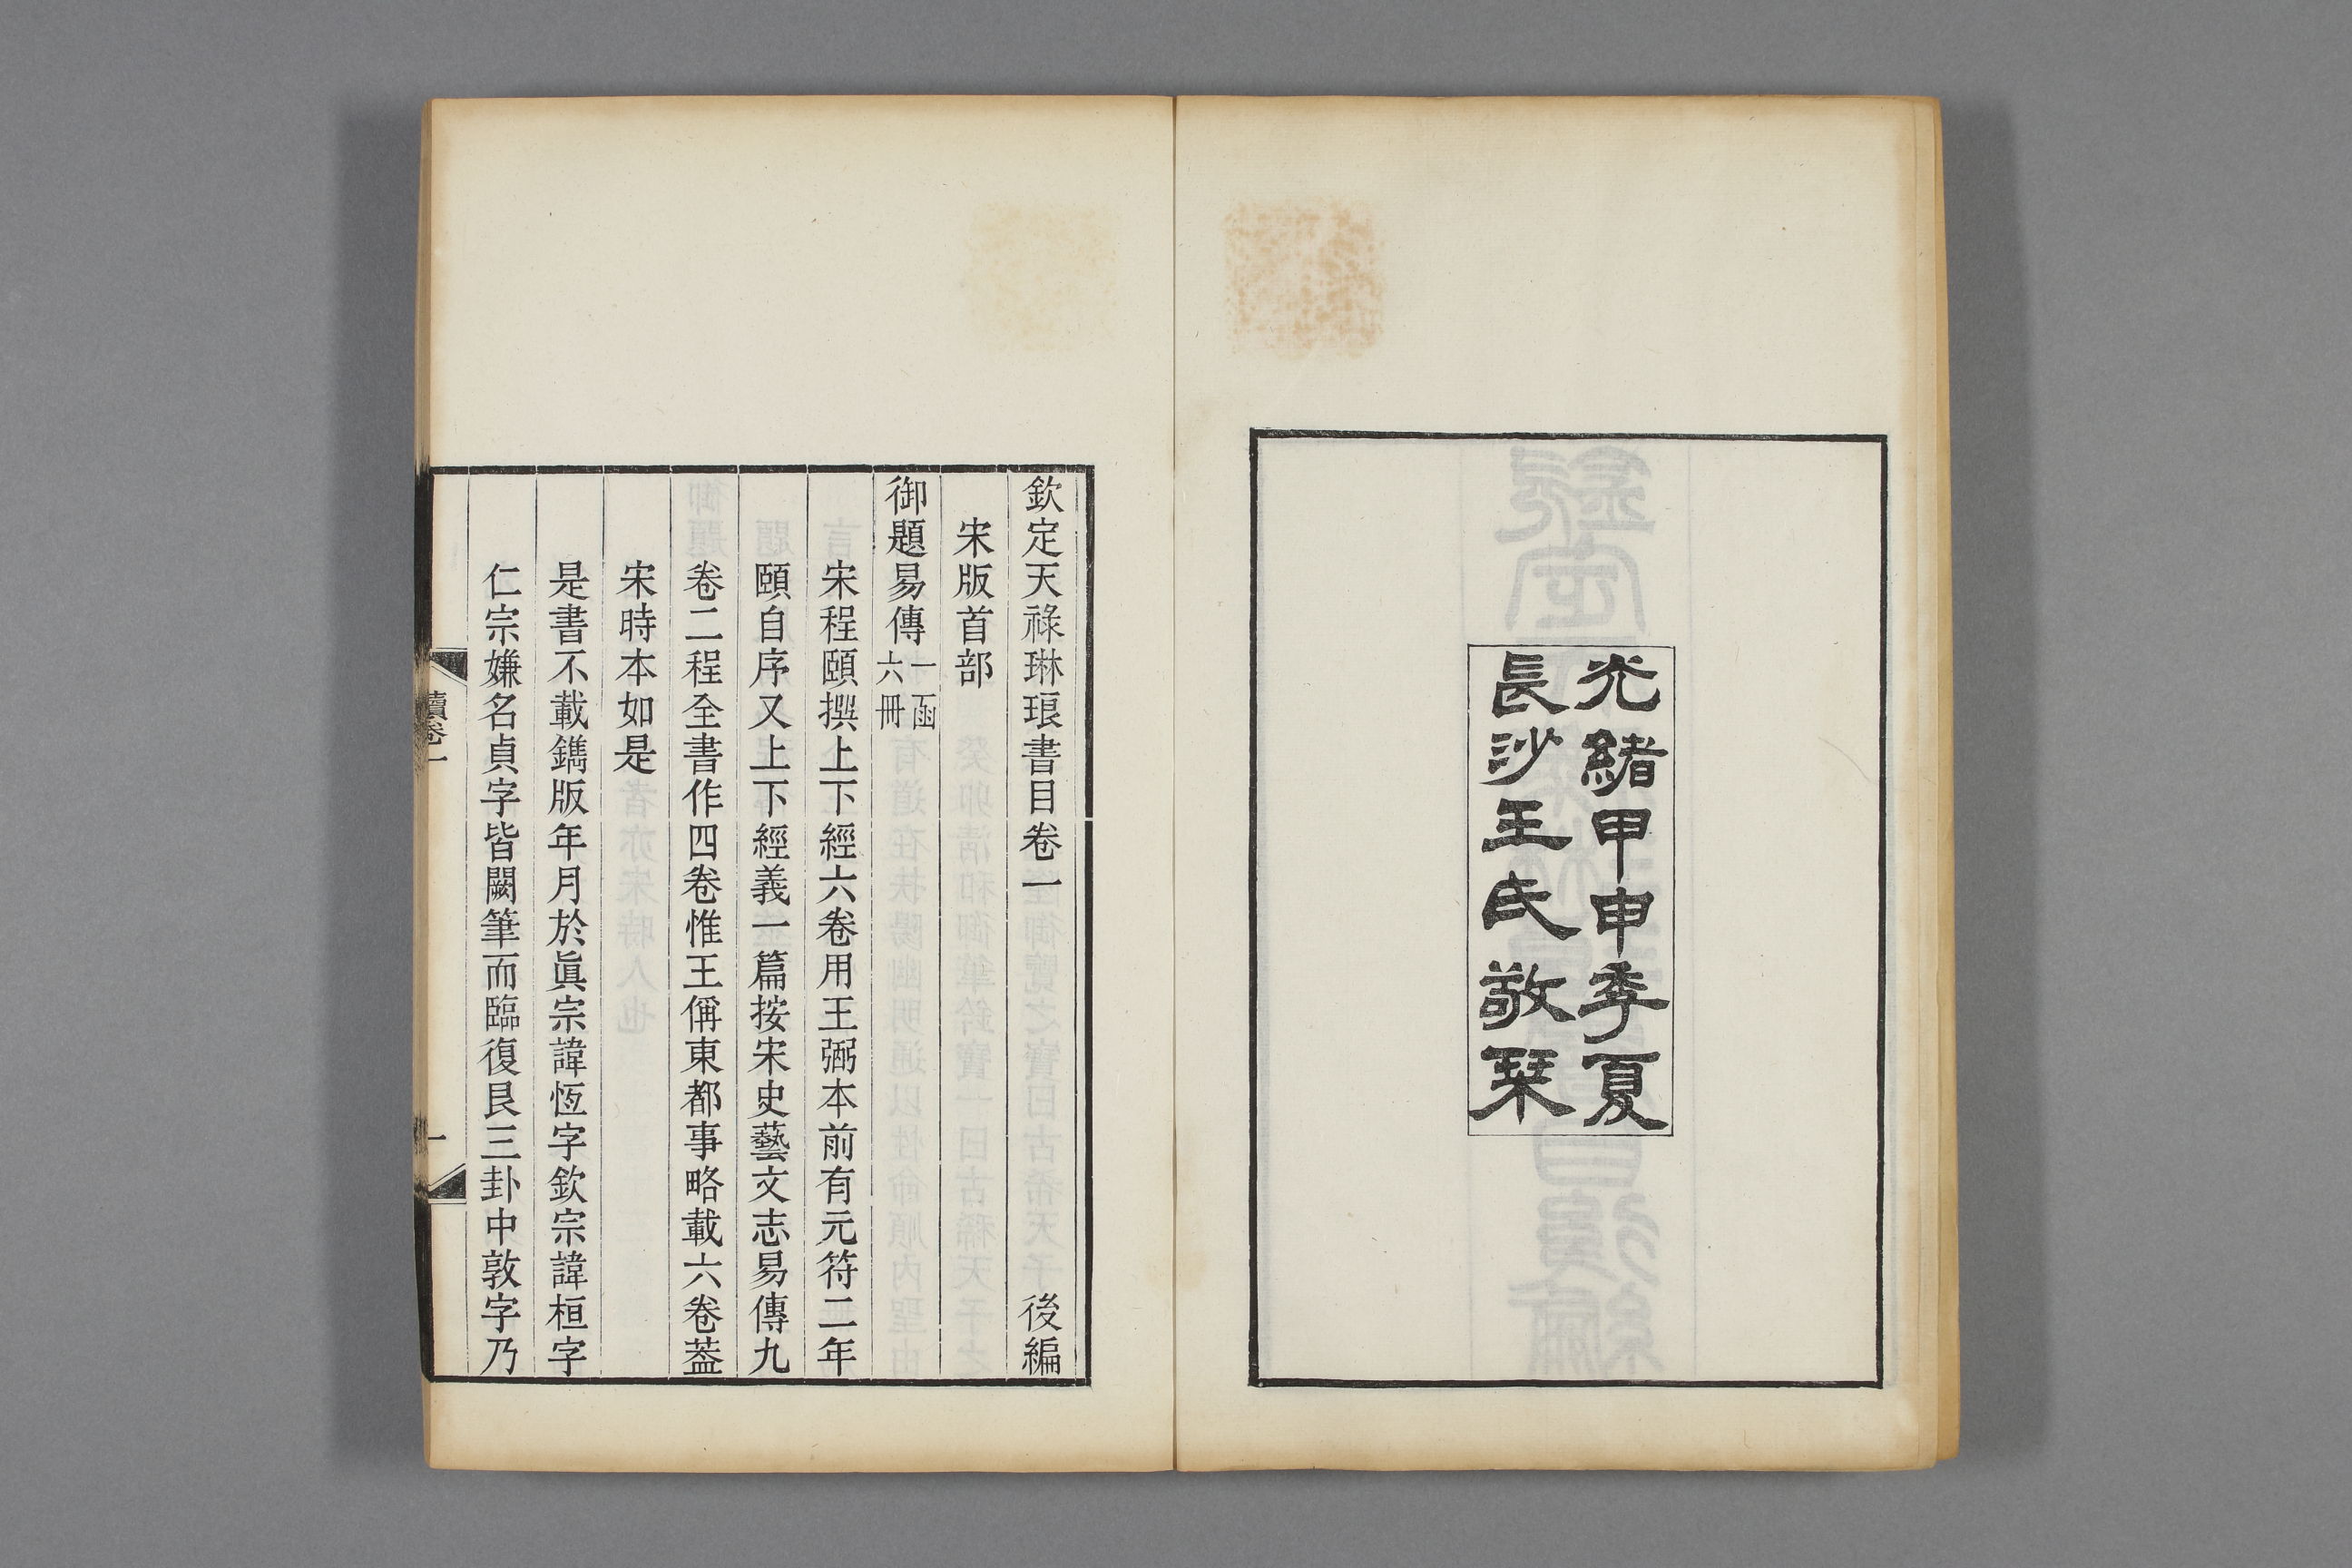 光緒甲申季夏
長沙王氏敬栞
欽定天祿琳琅書目卷一 後編
宋版首部
御題易傳 一函六冊
宋程頤撰上下經六卷用王弼本前有元符二年
頤自序又上下經義一篇按宋史藝文志易傳九
卷二程全書作四卷惟王偁東都事略載六卷葢
宋時本如是
是書不載鐫版年月於眞宗諱恆字欽宗諱桓字
仁宗嫌名貞字皆闕筆而臨復艮三卦中敦字乃
續卷一
一